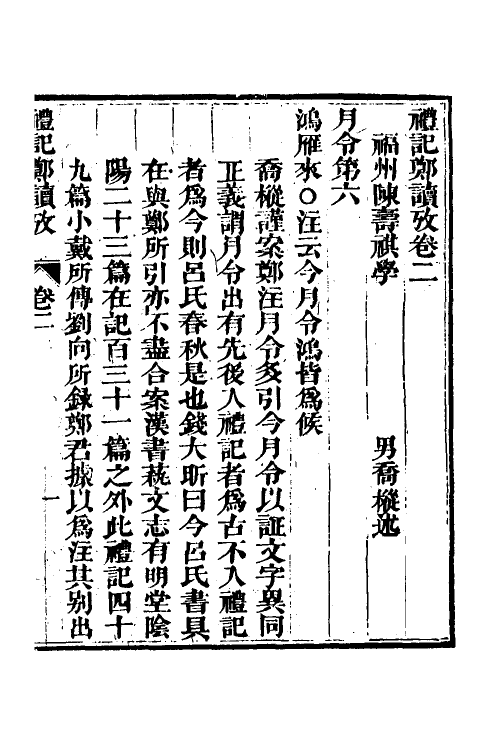 禮記鄭讀攷卷二
福州陳壽祺學 男喬樅述
月令第六
鴻雁來○注云今月令鴻皆爲候
喬樅謹案鄭注月令多引今月令以証文字異同
正義謂月令出有先後入禮記者爲古不入禮記
者爲今則呂氏春秋是也錢大昕曰今呂氏書具
在與鄭所引亦不盡合案漢書蓺文志有明堂陰
陽二十三篇在記百三十一篇之外此禮記四十
九篇小戴所傳劉向所錄鄭君據以爲注其别出
禮記鄭讀攷 卷二 一